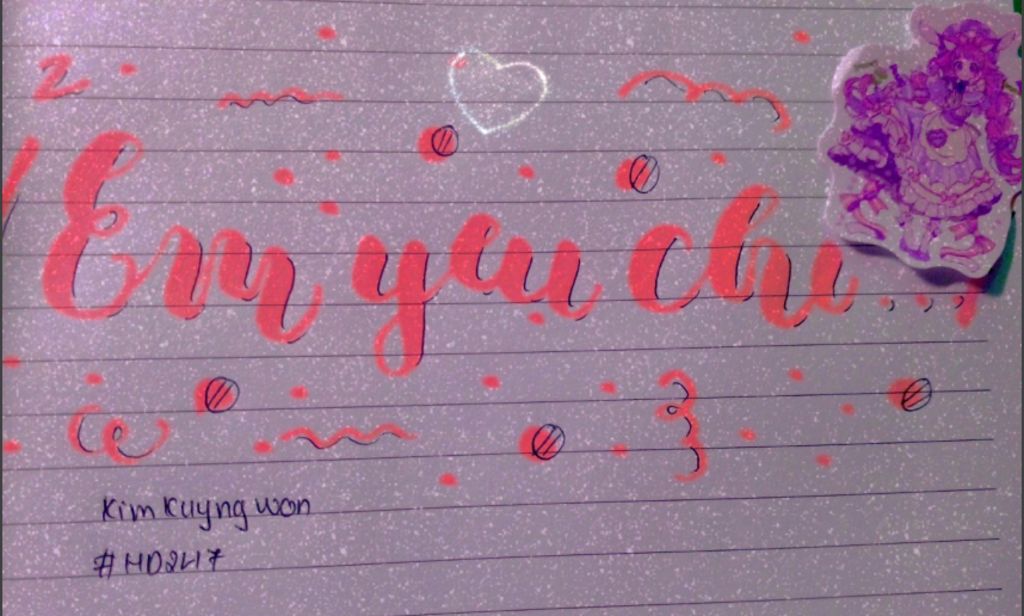 Em yeu chi...
Kim Kuyng won
#HD2417